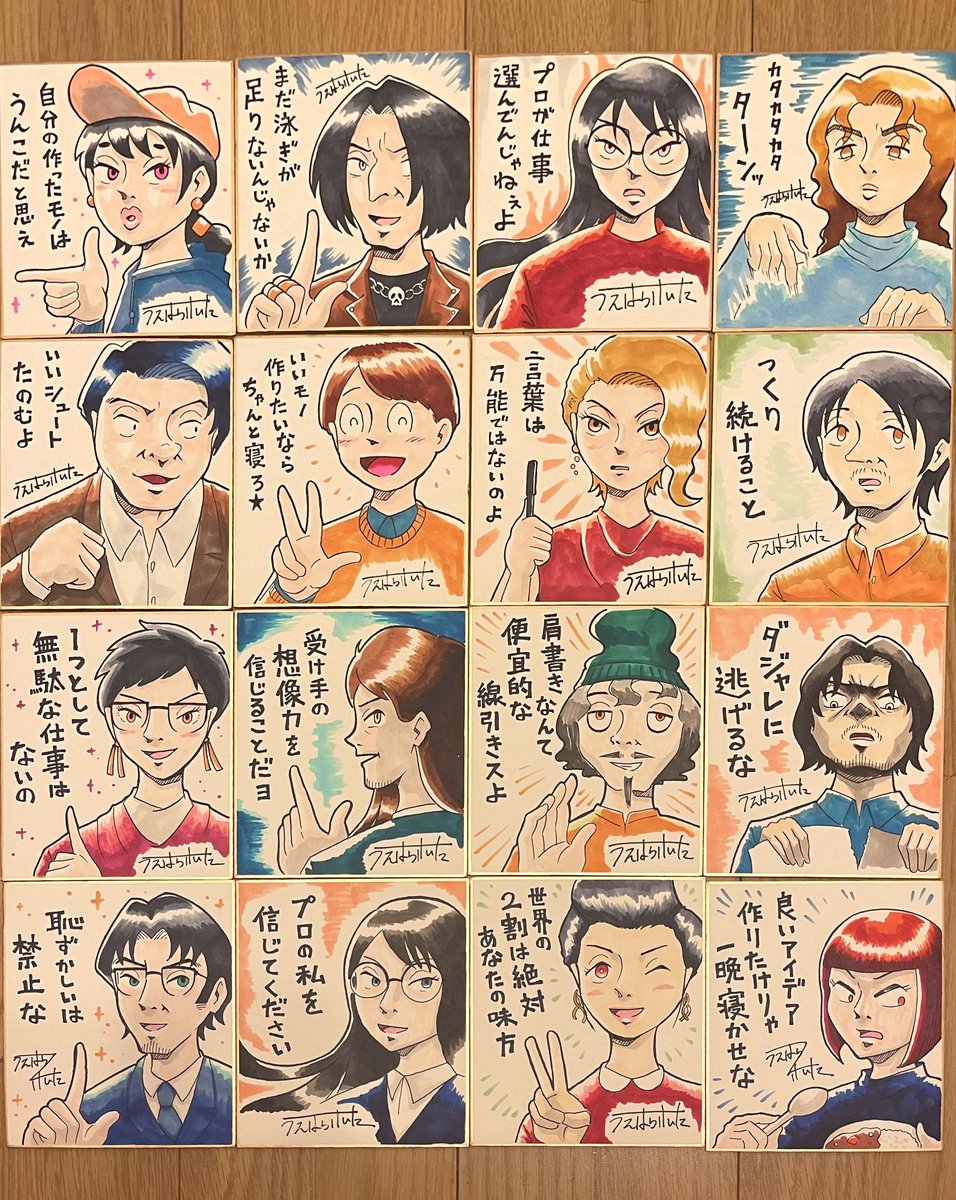 自分の作ったモノは
うんこだと思え
うえはらけいた
まだ泳ぎが
足りないんじゃないか
うえはらけいた
プロが仕事
選んでんじゃねぇよ
うえはらけいた
カタカタカタ
ターンッ
うえはらけいた
いいシュート
たのむよ
うえはらけいた
いいモノ
作りたいなら
ちゃんと寝ろ★
うえはらけいた
言葉は
万能ではないのよ
うえはらけいた
つくり
続けること
うえはらけいた
1つとして
無駄な仕事は
ないの
うえはらけいた
受け手の
想像力を
信じることだヨ
うえはらけいた
肩書きなんて
便宜的な
線引きスよ
うえはらけいた
ダジャレに
逃げるな
うえはらけいた
恥ずかしいは
禁止な
うえはら
けいた
プロの私を
信じてください
うえはらけいた
世界の
2割は絶対
あなたの味方
うえはらけいた
良いアイデア
作りたけりゃ
一晩寝かせな
うえはら
けいた